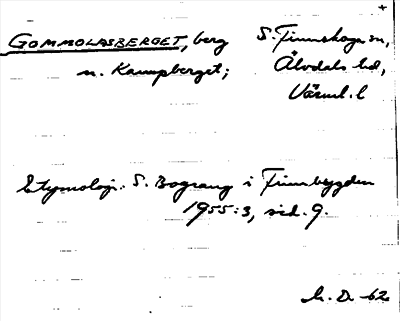 +
GOMMOLASBERGET, berg S. Finnskoga sn,
n. Kampberget; Älvdals hd,
Värml. l
Etymologi: S. Bograng i Finnbygden
1955:3, sid. 9.
h. D. -62